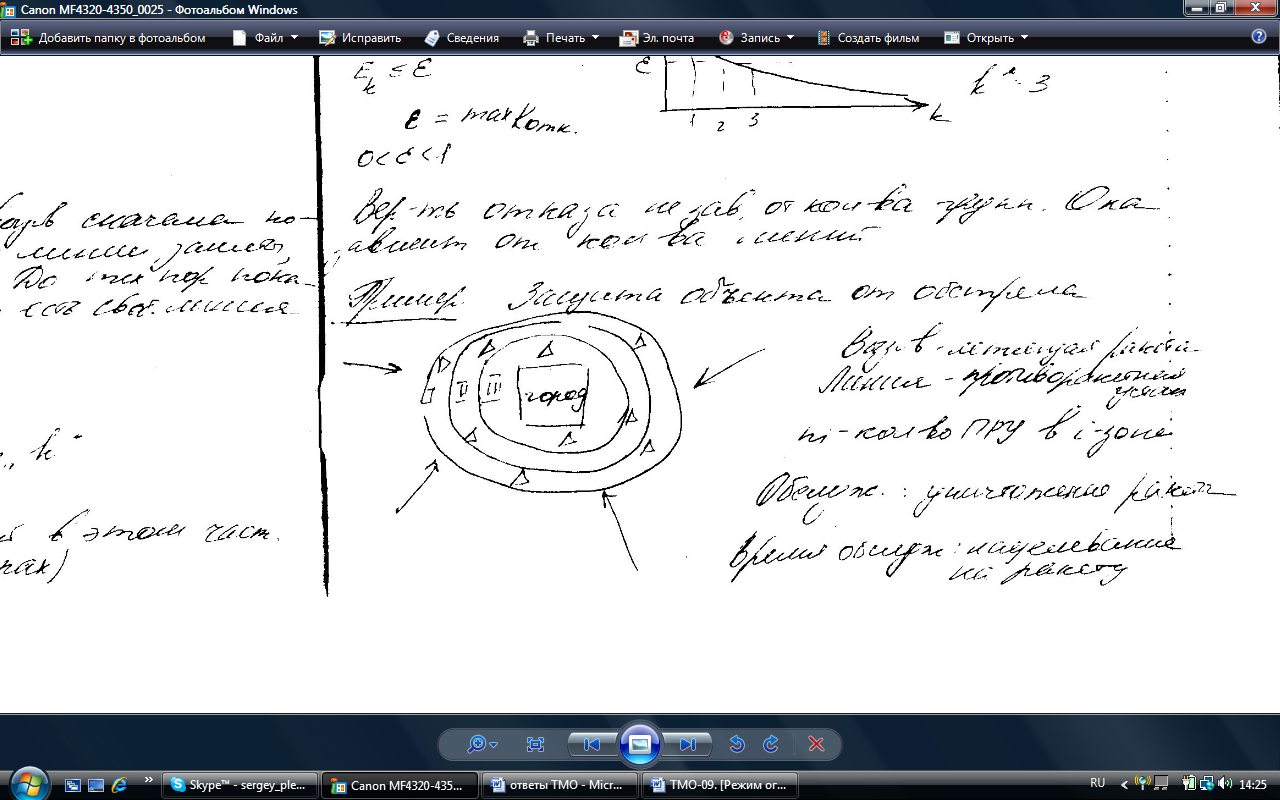 Canon MF4320-4350_0025 - Фотоальбом Windows
Добавить папку в фотоальбом Файл Исправить Сведения Печать Эл. почта Запись Создать фильм Открыть
E_k ≤ ε
ε = max K отк.
0 < ε < 1
ε
1 2 3 k
k* = 3
сначала по-
линии заняты,
До тех пор пока
есть своб. линия
„k"
в этом част.
Вер-ть отказа не зав. от кол-ва групп. Она
зависит от кол-ва линий
Пример Защита объекта от обстрела
I II III город
Вызов - летящая ракета
Линия - противоракетная
устан
ni - кол-во ПРУ в i-зоне
Обслуж. : уничтожение ракеты
Время обслуж : нацеливание
на ракету
Skype™ - sergey_ple... Canon MF4320-435... ответы ТМО - Micr... ТМО-09. [Режим ог... RU 14:25